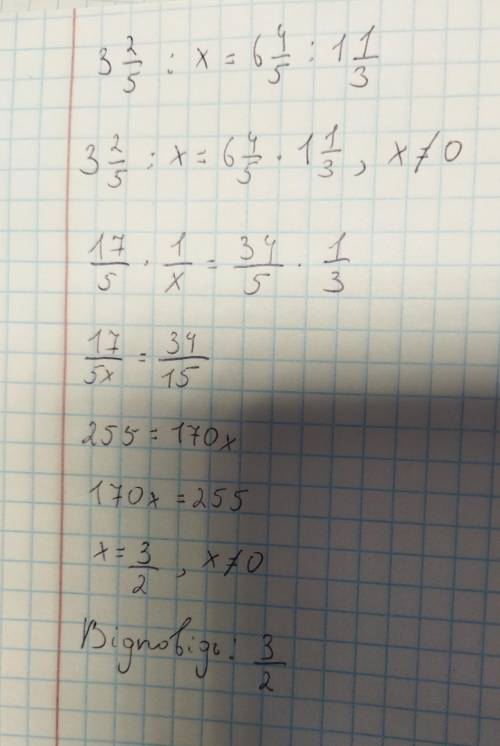 3 2/5 : x = 6 4/5 : 1 1/3
3 2/5 : x = 6 4/5 · 1 1/3, x ≠ 0
17/5 · 1/x = 34/5 · 1/3
17/5x = 34/15
255 = 170x
170x = 255
x = 3/2, x ≠ 0
Відповідь: 3/2